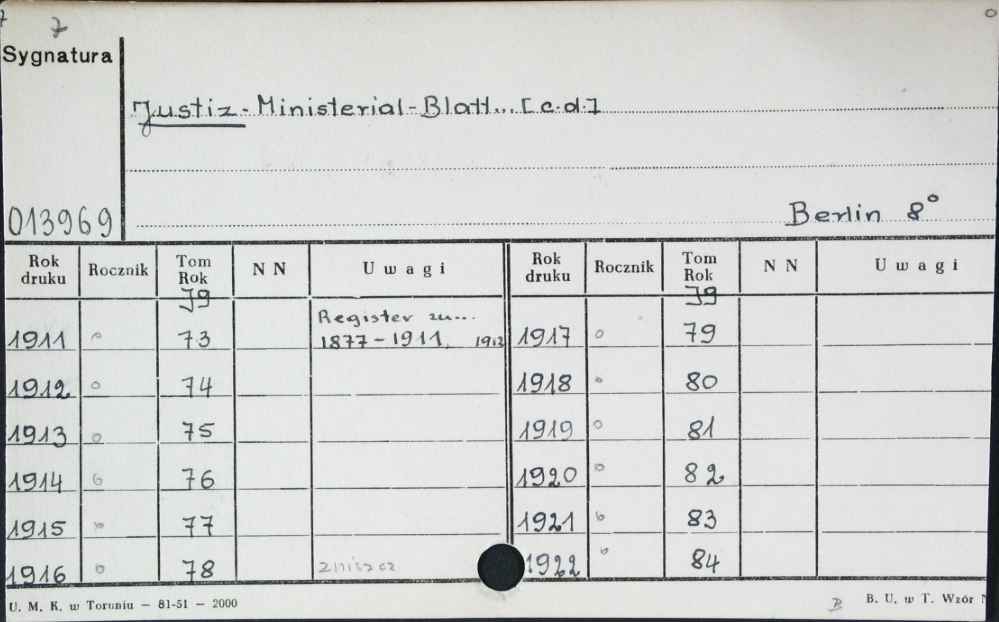 7
Sygnatura
Justiz-Ministerial-Blatt... [c.d.]
013969
Berlin 8°
Rok druku Rocznik Tom Rok NN Uwagi Rok druku Rocznik Tom Rok NN Uwagi
Jg Jg
Register zu...
1911 o 73 1877-1911, 1912 1917 o 79
1912 o 74 1918 o 80
1913 o 75 1919 o 81
1914 o 76 1920 o 82
1915 o 77 1921 o 83
1916 o 78 1922 o 84
U. M. K. w Toruniu — 81-51 — 2000
B B. U. w T. Wzór